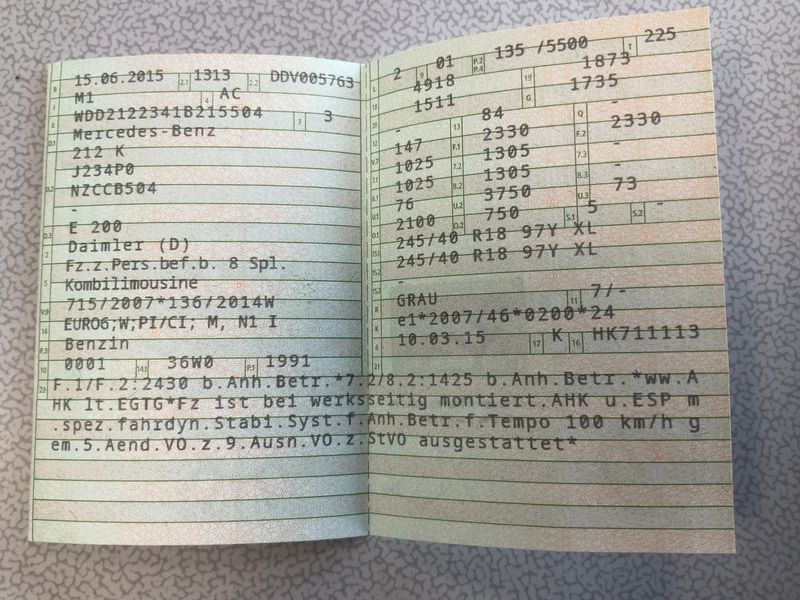 B 15.06.2015 2.1 1313 2.2 DDV005763
J M1 4 AC
E WDD2122341B215504 3 3
D.1 Mercedes-Benz
212 K
D.2 J234P0
NZCCB504
-
D.3 E 200
2 Daimler (D)
Fz.z.Pers.bef.b. 8 Spl.
5 Kombilimousine
V.9 715/2007*136/2014W
14 EURO6;W;PI/CI; M, N1 I
P.3 Benzin
10 0001 14.1 36W0 P.1 1991
L 2 9 01 P.2 P.4 135 /5500 T 225
18 4918 19 1873
20 1511 G 1735
12 - 13 84 Q -
V.7 147 F.1 2330 F.2 2330
7.1 1025 7.2 1305 7.3 -
8.1 1025 8.2 1305 8.3 -
U.1 76 U.2 3750 U.3 73
O.1 2100 O.2 750 S.1 5 S.2 -
15.1 245/40 R18 97Y XL
15.2 245/40 R18 97Y XL
15.3 -
R GRAU 11 7/-
K e1*2007/46*0200*24
6 10.03.15 17 K 16 HK711113
21
22 F.1/F.2:2430 b.Anh.Betr.*7.2/8.2:1425 b.Anh.Betr.*ww.A
HK lt.EGTG*Fz ist bei werksseitig montiert.AHK u.ESP m
.spez.fahrdyn.Stabi.Syst.f.Anh.Betr.f.Tempo 100 km/h g
em.5.Aend.VO.z.9.Ausn.VO.z.StVO ausgestattet*